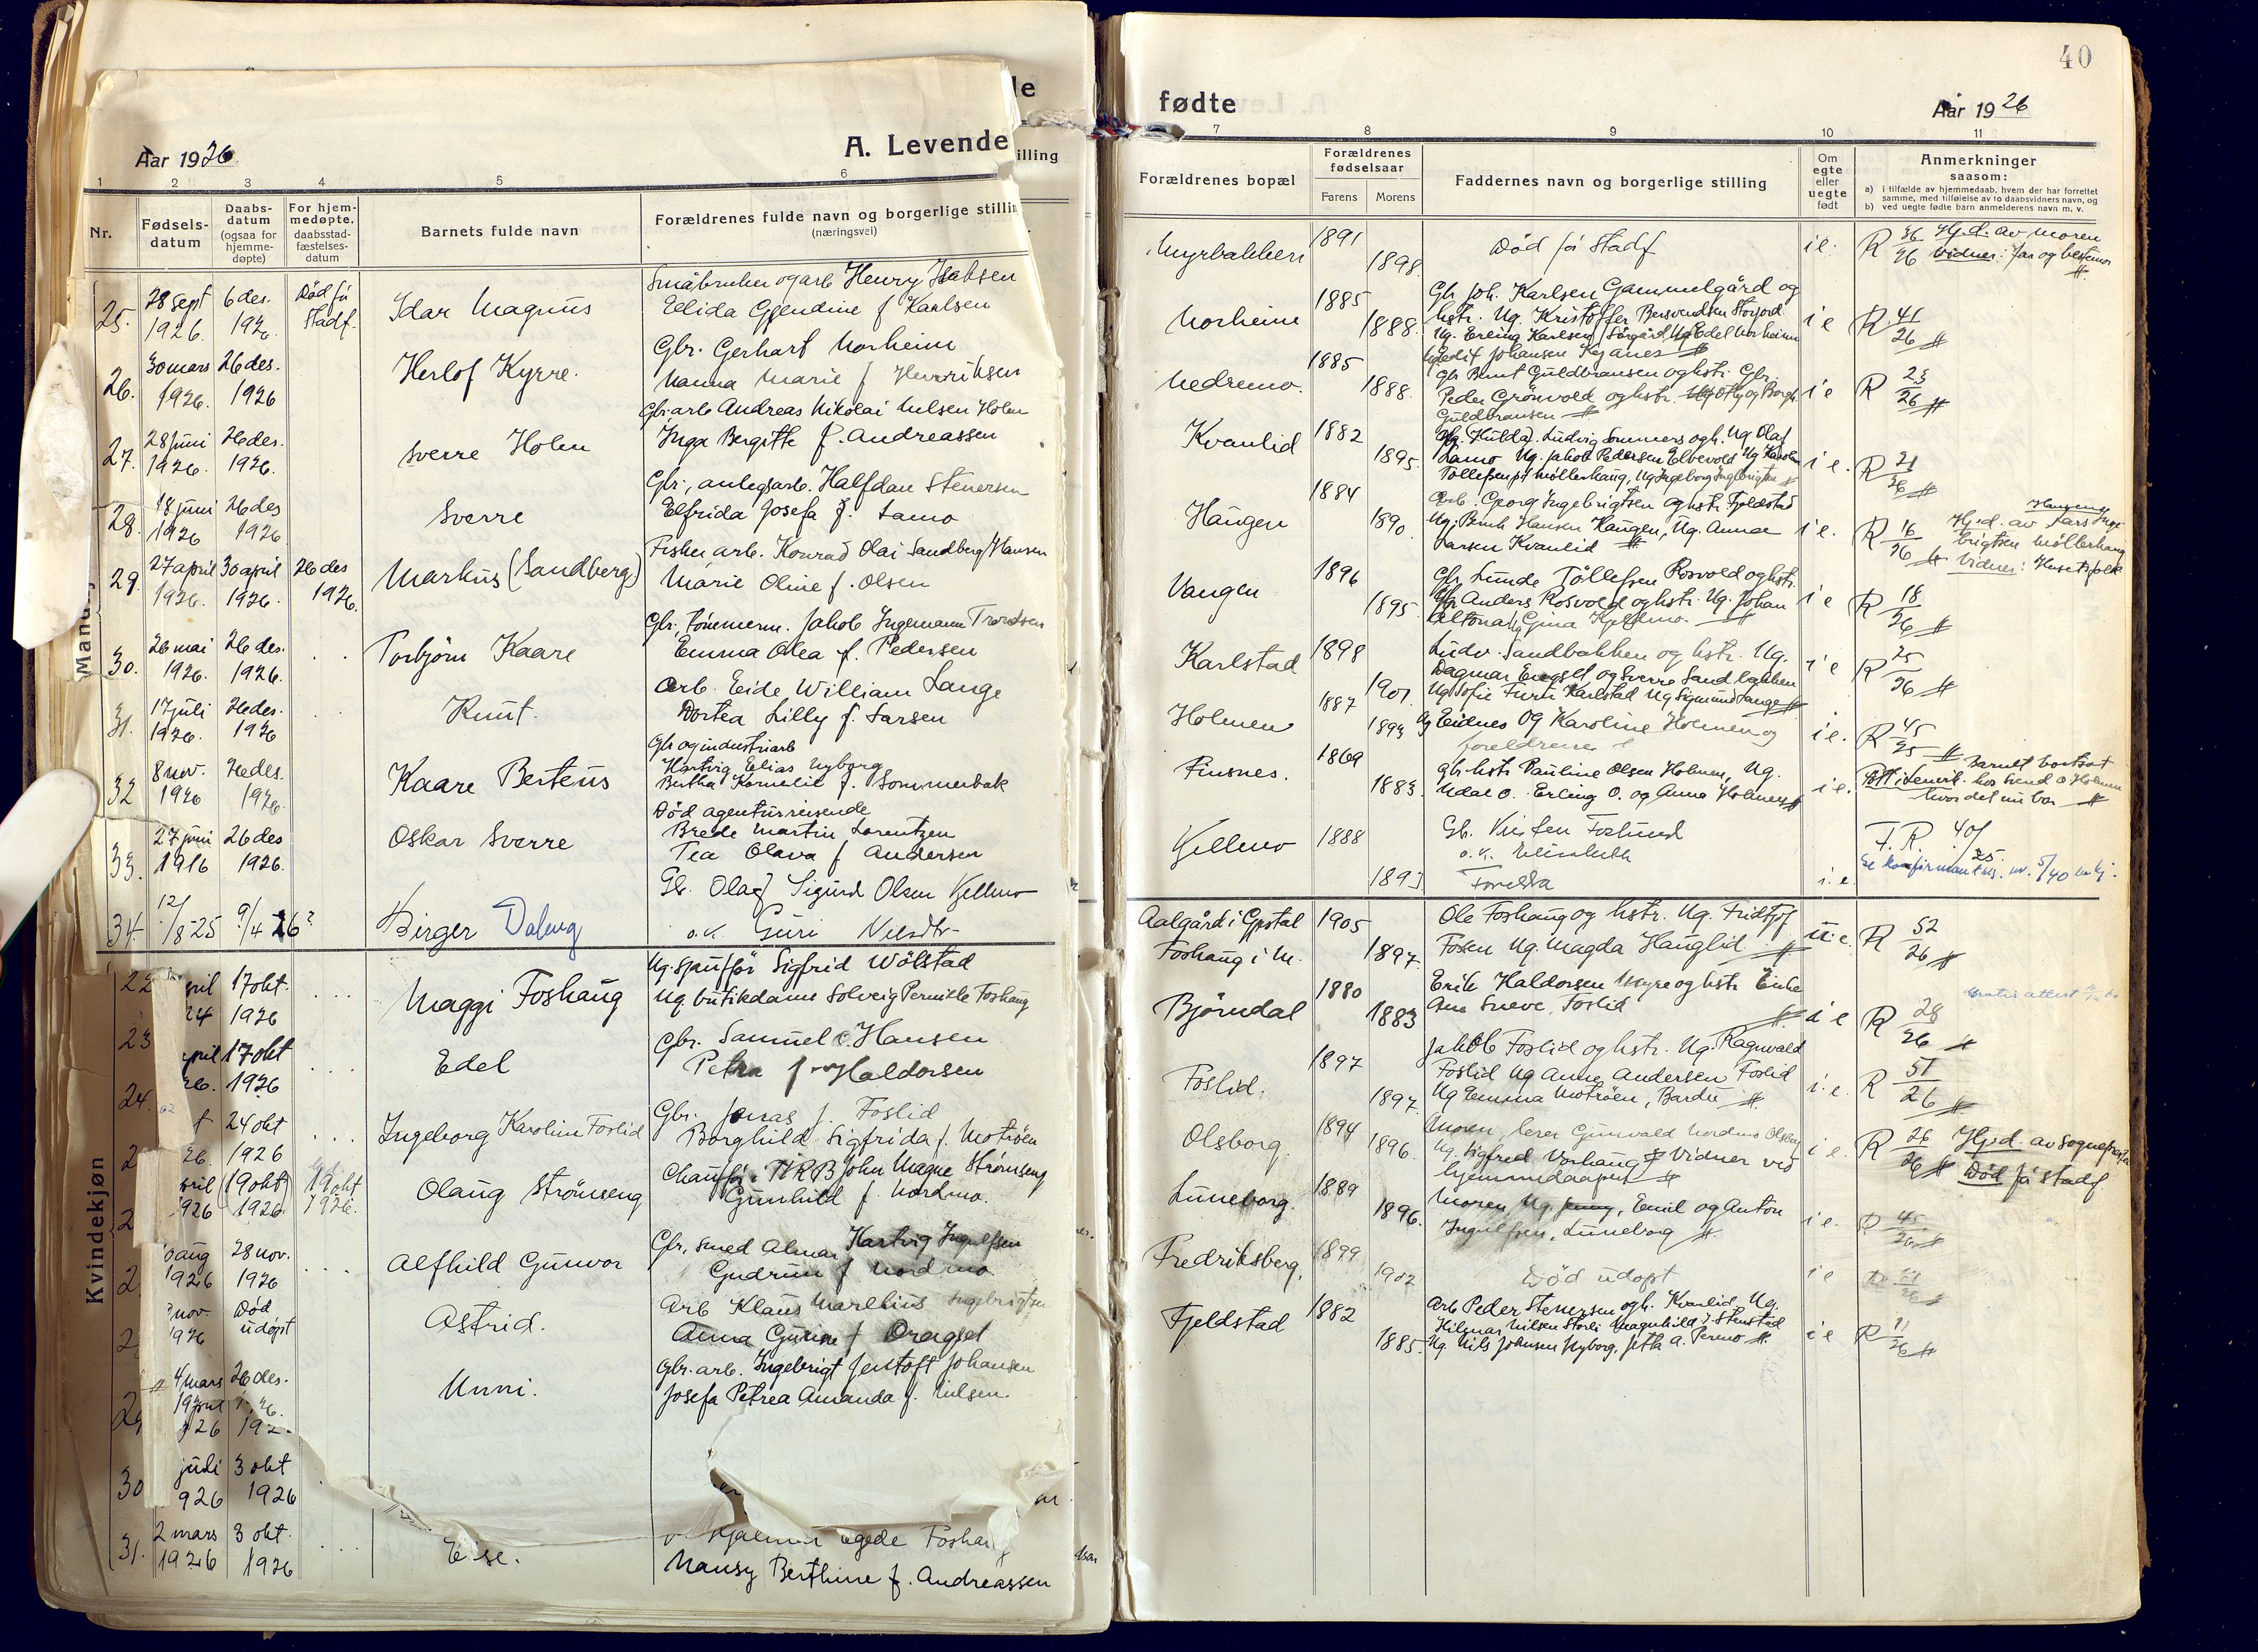 Aar 1926
A. Levende
illing
1 2 3 4 5 6
Nr.
Fødsels-
datum
Daabs-
datum
(ogsaa for
hjemme-
døpte)
For hjem-
medøpte,
daabsstad-
fæstelses-
datum
Barnets fulde navn
Forældrenes fulde navn og borgerlige stillin
(næringsvei)
25. 28 sept 1926. 6 des. 1926 Død før stadf.
Idar Magnus
Småbruker og arb Henry Isaksen
Ellida Gjendine f Karlsen
26. 30 mars 1926. 26 des. 1926
Herlof Kyrre.
Gbr. Gerhart Norheim
Nanna Marie f Henriksen
27. 28 juni 1926. 26 des. 1926.
Sverre Holm
Gbr. arb Andreas Nikolai Nilsen Holm
Inga Bergitte f. Andreassen
28. 18 juni 1926 26 des 1926
Sverre
Gbr., anlegsarb. Halfdan Stenersen
Elfrida Josefa f. Lamo
29. 27 april 1926. 30 april 1926. 26 des 1926.
Markus (Sandberg)
Fisker arb. Konrad Olai Sandberg Hansen
Marie Oline f. Olsen
30. 26 mai 1926. 26 des. 1926.
Torbjørn Kaare
Gbr. tømmerm. Jakob Ingemann Trondsen
Emma Olea f. Pedersen
31. 17 juli 1926. 26 des. 1926
Knut.
Arb. Eide William Lange
Dortea Lilly f. Larsen
32 8 nov. 1926 26 des. 1926.
Kaare Bertens
Gbr og industriarb
Hartvig Elias Nyborg
Bertha Kornelie f. Sommerbak
33. 27 juni 1916 26 des 1926.
Oskar Sverre
Død agenturreisende
Brede Martin Lorentzen
Tea Olava f Andersen
34. 12/8-25 9/4-26?
Birger Dalmg
Gb. Olaf Sigurd Olsen Kjellmo
o.k. Guri Nilsdtr
Kvindekjøn
22 17 okt. 1926
Maggi Foshaug
Ug. sjåfför Sigfrid Wölstad
Ug. butikdame Solveig Pernille Foshaug
23 17 okt 1926
Edel
Gbr. Samuel C. Hansen
Petra f. Haldorsen
24. 24 okt 1926
Ingeborg Karoline Foslid
Gbr. Jonas J. Foslid
Borghild Sigfrida f. Moströen
(19 okt 1926) 19 okt 1926.
Olaug Strömseng
Chaufför i T.R.B John Magne Strömseng
Gunhild f. Nordmo.
aug 1926 28 nov. 1926
Alfhild Gunvor
Gbr, smed Almar Hartvig Ingulfsen
Gudrun f Nordmo
nov 1926 Død udöpt
Astrid.
Arb Klaus Marelius Ingebrigtsen
Anna Gurine f Dragset
29 4 mars 26 des.
Unni.
Gbr. arb. Ingebrigt Jentoft Johansen
Josefa Petrea Amanda f. Nilsen.
30 juli 926 3 okt 1926
31. 2 mars 1926 3 okt. 1926
E se.
Egede Foshau
Nansy Berthine f. Andreassen
40
fødte
Aar 1926
7 8 9 10 11
Forældrenes bopæl
Forældrenes
fødselsaar
Farens Morens
Faddernes navn og borgerlige stilling
Om
egte
eller
uegte
født
Anmerkninger
saasom:
a) i tilfælde av hjemmedaab, hvem der har forrettet
samme, med tilføielse av to daabsvidners navn, og
b) ved uegte fødte barn anmelderens navn m. v.
Myrbakken 1891 1898.
Død før Stadf
i e. R 36/26 Hj.d. av moren
Vidner: far og bestemor
Norheim 1885 1888.
Gb Joh. Karlsen Gammelgård og
hstr. Ug. Kristoffer Bersvendsen Storjord
Ug. Erling Karlsen Sörgård Ug Edel Norheim
i e R 41/26
Nedremo. 1885 1888.
Gb Bernt Guldbransen og hstr. Gbr.
Peder Grönvold og hstr.
Guldbransen
i e R 23/26
Kvanlid 1882 1895.
Ludvig Sommers og h. Ug Olaf
Lamo Ug. Jakob Pedersen Elvevold Ug Karoline
i e. R 21/26
Haugen 1884 1890.
Arb. Georg Ingebrigtsen og hstr. Fjeldstad
Ug. Bernh Hansen Haugen, Ug. Anna
Larsen Kvanlid
i e. R 16/26
Hj.d. av Lars Inge
brigtsen Möllerhaug
Vidner: Husets folk
Vangen 1896 1895.
Gb Lunde Töllefsen Rosvold og hstr.
Gb Anders Rosvold og hstr. Ug. Johan
Altona, Ug Gina Kjellmo.
i e R 18/26
Karlstad 1898 1901
Ludv. Sandbakken og hstr. Ug.
Dagmar Engset og Sverre Sandbakken
Ug Sofie Furu Karlstad Ug Sigmund Lange
i e R 25/26
Holmen 1887 1893
Ug Eidnes og Karoline Holmen og
foreldrene
i e. R 45/25
Finsnes. 1869 1883.
gbr hstr Pauline Olsen Holmen, Ug.
Udal O. Erling O. og Anna Holmen
i e.
Barnet bortsat
hos Svend O Holmen
hvor det nu bor
Kjellmo 1888 1893
Gb. Kristen Foslund
o.k. Elisabeth
Foreldra
i. e. F. R. 40/25.
Se konfirmantreg. nr. 5/40
Aalgård i Gjestal 1905
Foshaug i M. 1897.
Ole Foshaug og hstr. Ug. Fridtjof
Fosen Ug. Magda Hauglid
u. e. R 52/26
Bjørndal 1880 1883
Erik Haldorsen Myre og hstr Eirik
Ana Sneve, Foslid
i e R 28/26
Foslid. 1897 1897.
Jakob Foslid og hstr. Ug. Ragnvald
Foslid Ug Anna Andersen Foslid
Ug Emma Moströen, Bardu
i. e. R 51/26
Olsborg. 1894 1896.
Moren, lærer Gunvald Nordmo Olsborg
Ug. Sigfred Vorhaug Vidner ved
hjemmedaapen
i e. R 26/26 Hj.d. av Sogneprest
Død før stadf.
Luneborg. 1889 1896.
Moren, Ug. Jenny, Emil og Anton
Ingulfsen, Luneborg
i e. R 45/26
Fredriksberg. 1899 1902
Død udöpt
i e
Fjeldstad 1882 1885.
Arb Peder Stenersen og h. Kvanlid. Ug.
Hilmar Nilsen Storli Magnhild J. Stenstad
Ug. Nils Johnsen Nyborg, Jetta A. Permo
i e R 11/26